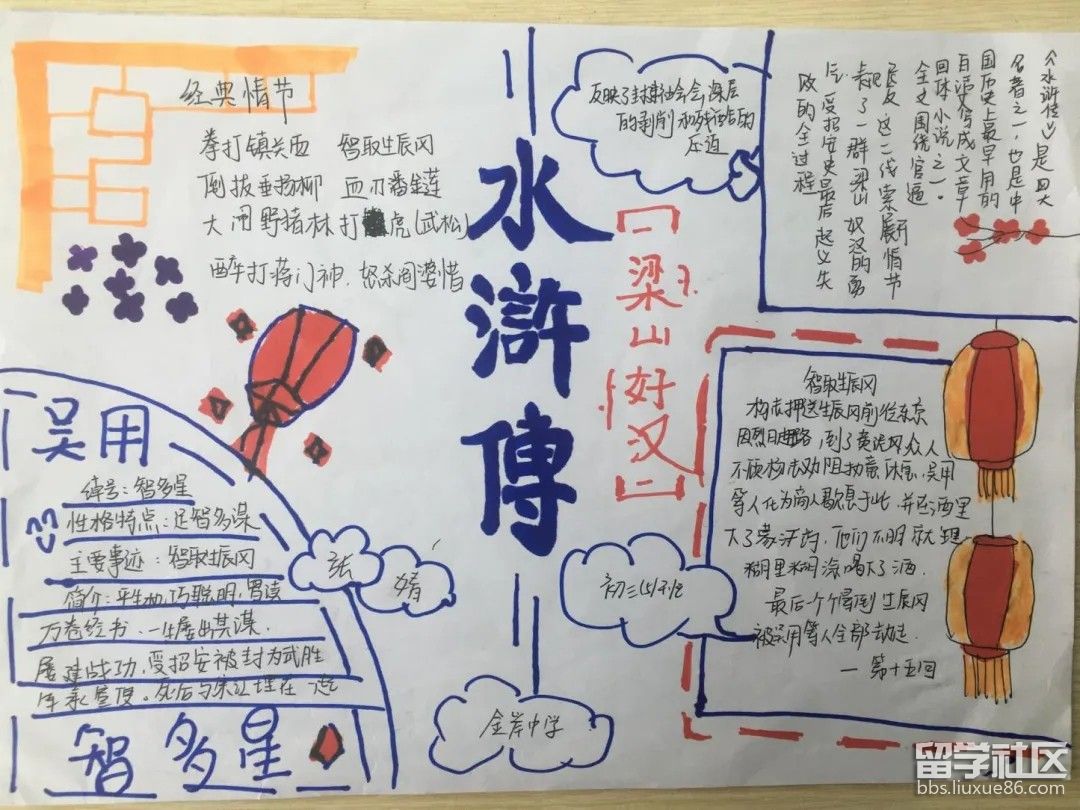 经典情节
拳打镇关西 智取生辰冈
倒拔垂扬柳 血刃番金莲
大闹野猪林 打虎(武松)
醉打蒋门神、怒杀阎婆惜
水滸傳
【梁山好汉】
反映了封建社会会深层
的剥削和残
压迫
《水浒传》是四大
名著之一,也是中
国历史上最早用的
白话文写成文章
回体小说之一。
全文围绕官逼
民反这一线索展开情节
表现了一群梁山好汉的
受招安史最后起义失
败的全过程
吴用
绰号:智多星
性格特点:足智多谋
主要事迹:智取生辰冈
简介:平生机巧聪明,曾读
万卷经书.一生屡出其谋.
屡建战功,受招安被封为武胜
军承宣使。死后与宋江埋在一起
智多星
张
婧
初三(5)班
金岸中学
智取生辰冈
杨志押送生辰冈前位东京
因烈日 ,到了黄泥冈众人
不顾杨志劝阻执意休息,吴用
等人化为商人歇息于此,并在酒里
大了蒙汗药,他们不明就
糊里糊涂喝下了酒.
最后一个个晕倒 生辰冈
被吴用等人全部劫走.
— 第十五回
留学社区
bbs.liuxue86.com